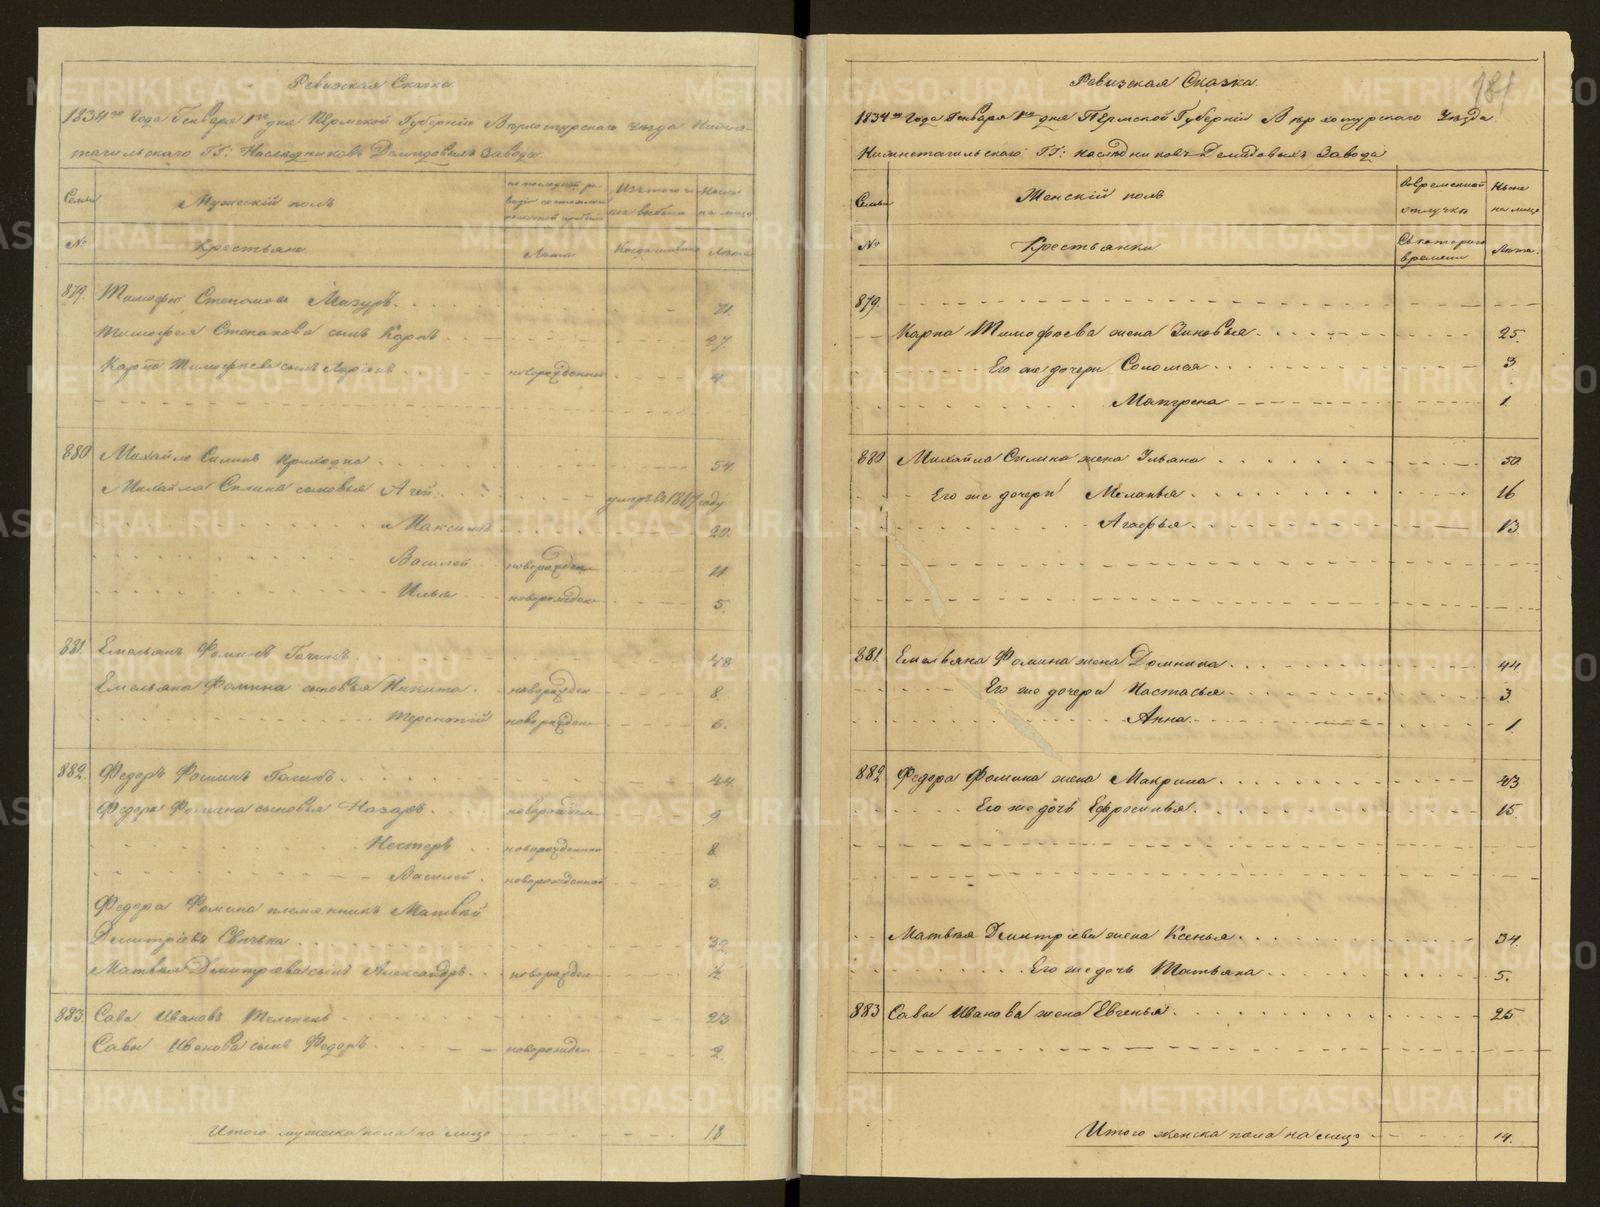 Ревизская Сказка
1834го Года Генваря 1го дня Пермской Губернiи Верхотурскаго Уезда Нижне-
тагильскаго ГГ: Наследниковъ Демидовыхъ Завода
Семьи
Мужескiй полъ
по последней ре
визiи состояло и
Изъ того чи
сла выбыло
Ныне
на лицо
№
Крестьяне
Лета
Когда именно
Лета
879. Тимофей Степановъ Мазуръ 71.
Тимофея Степанова сынъ Карпъ 27.
Карпа Тимофеева сынъ новорожденной 4
880 Михайло Силинъ 54
Михайла Силина сыновья Агей умеръ въ году
Максимъ 20.
Василей новорожден 11
Илья новорожден 5.
881. Емельянъ Фоминъ 48
Емельяна Фомина сыновья Никита новорожден 8.
Терентiй новорожден 6.
882. Федоръ Фоминъ 44
Федора Фомина сыновья Назаръ новорожден 9
Нестеръ новорожденной 8.
Василей новорожденной 3.
Федора Фомина племянникъ Матвей
Дмитрiевъ 32
Матвея Дмитрiева сынъ Александръ новорожден
883. Сава Ивановъ 23
Савы Иванова сынъ Федоръ новорожден 2.
Итого мужеска пола на лицо 18
181
Ревизская Сказка
1834го Года Генваря 1го дня Пермской Губернiи Верхотурскаго Уезда
Нижнетагильскаго ГГ: наследниковъ Демидовыхъ Завода
Семьи
Женскiй полъ
Во временной
отлучке
Ныне
на лицо
№
Крестьянки
Съ котораго
времени
Лета.
879.
Карпа Тимофеева жена Зиновья 25.
Его же дочери Соломея 3.
Матрена 1.
880 Михайла Силина жена Ульяна 50.
Его же дочери Меланья 16
Агафья 13.
881. Емельяна Фомина жена Домника 44
Его же дочери Настасья 3.
Анна 1
882 Федора Фомина жена Макрина 43
Его же дочь Ефросинья 15
Матвея Дмитрiева жена Ксенья 34.
Его же дочь Татьяна 5.
883 Савы Иванова жена Евгенья 25
Итого женска пола на лицо 14.
METRIKI.GASO-URAL.RU